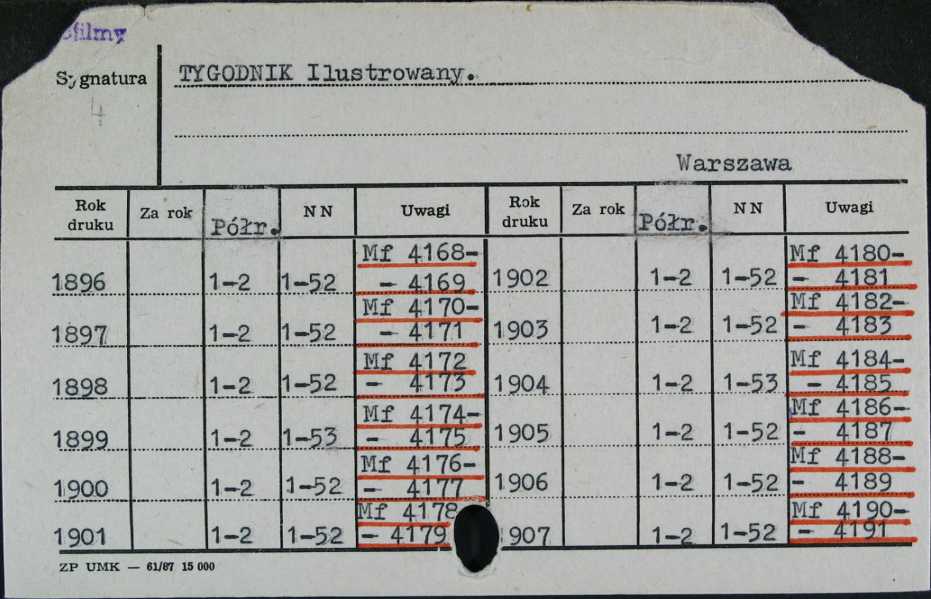 filmy
Sygnatura
TYGODNIK Ilustrowany.
4
Warszawa
Rok druku Za rok Półr. NN Uwagi Rok druku Za rok Półr. NN Uwagi
1896 1-2 1-52 Mf 4168- - 4169 1902 1-2 1-52 Mf 4180- - 4181
1897 1-2 1-52 Mf 4170- - 4171 1903 1-2 1-52 Mf 4182- - 4183
1898 1-2 1-52 Mf 4172 - 4173 1904 1-2 1-53 Mf 4184- - 4185
1899 1-2 1-53 Mf 4174- - 4175 1905 1-2 1-52 Mf 4186- - 4187
1900 1-2 1-52 Mf 4176- - 4177 1906 1-2 1-52 Mf 4188- - 4189
1901 1-2 1-52 Mf 4178 - 4179 1907 1-2 1-52 Mf 4190- - 4191
ZP UMK — 61/87 15 000